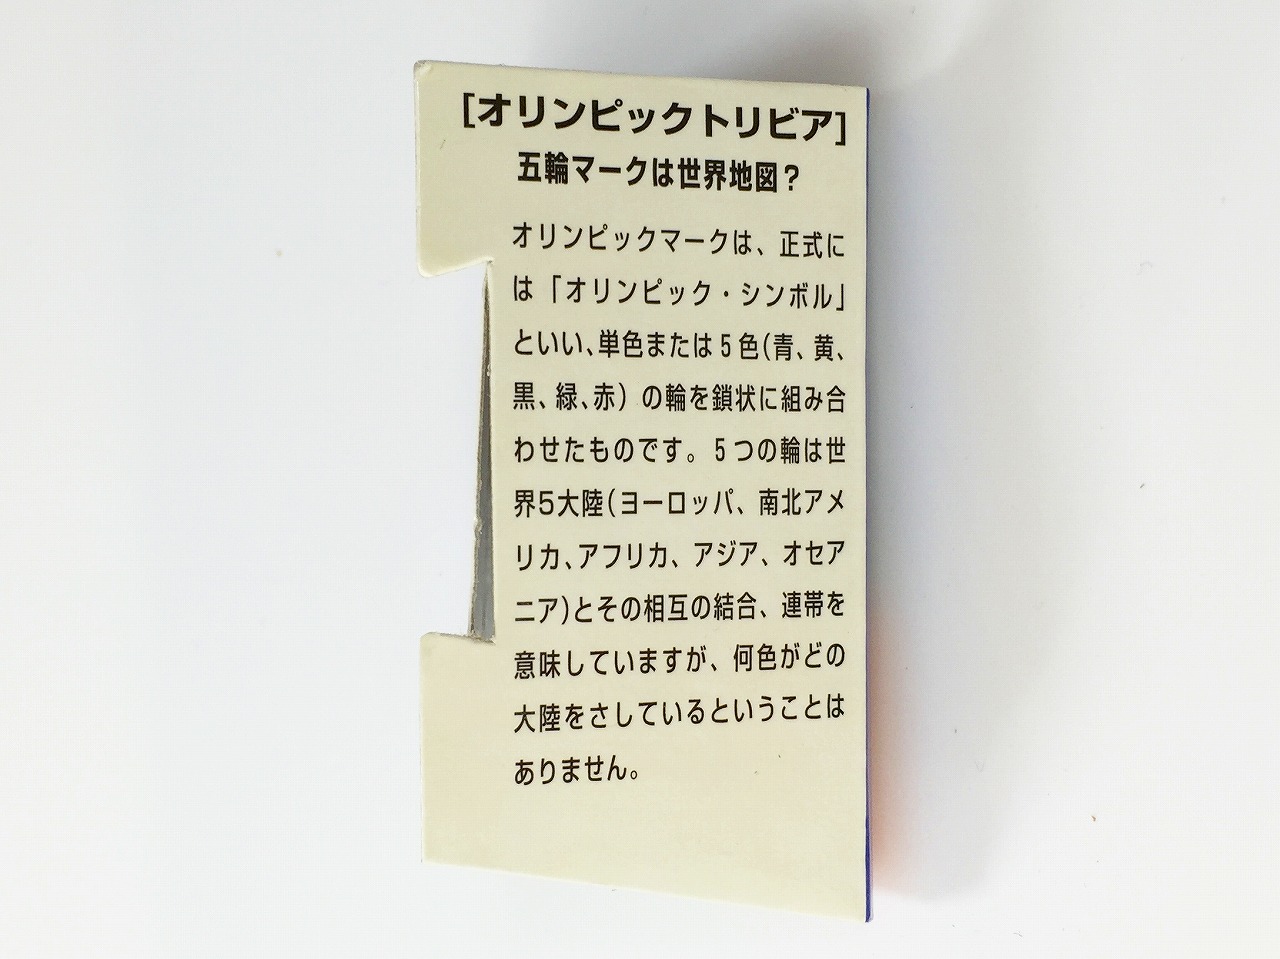 [オリンピックトリビア]
五輪マークは世界地図？
オリンピックマークは、正式に
は「オリンピック・シンボル」
といい、単色または5色(青、黄、
黒、緑、赤）の輪を鎖状に組み合
わせたものです。5つの輪は世
界5大陸(ヨーロッパ、南北アメ
リカ、アフリカ、アジア、オセア
ニア)とその相互の結合、連帯を
意味していますが、何色がどの
大陸をさしているということは
ありません。